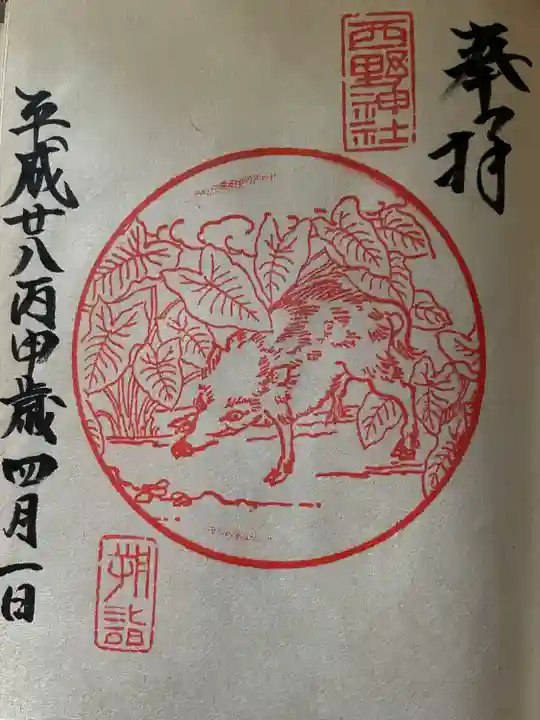 奉拝
西野神社
平成廿八丙申歳四月一日
朔詣